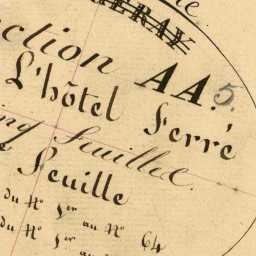 ction AA.5.
L'hôtel Ferré
Feuilles.
Feuille
du N° 1er au N° 64
du N° 1er au